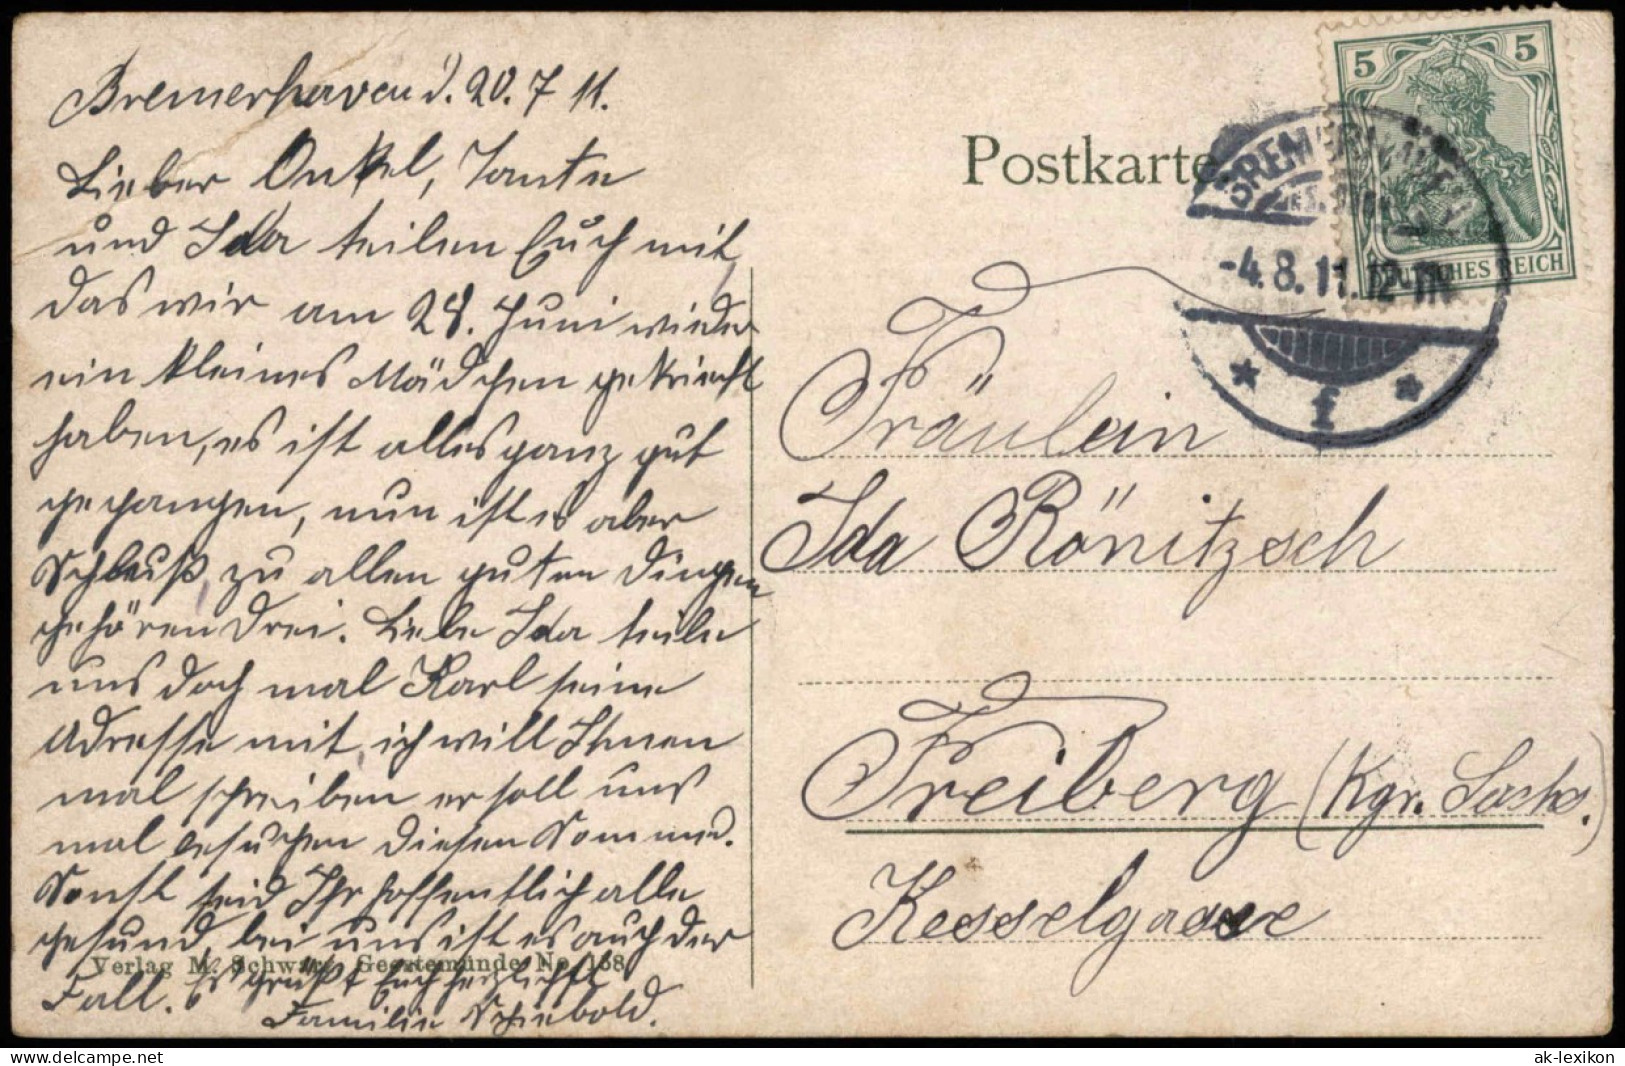 Bremerhaven d. 20. 7 11.
Lieber Onkel, Tante
und Ida teilen Euch mit,
das wir am 28. Juni wieder
ein kleines Mädchen gekriecht
haben, es ist alles ganz gut
gegangen, nun ist es aber
Schluß, zu allen guten Dingen
gehören Drei. Liebe Ida teile
uns doch mal Karl seine
Adresse mit, ich will Ihnen
mal schreiben er soll uns
mal besuchen diesen Sommer.
Sonst seid Ihr hoffentlich alle
gesund, bei uns ist es auch der
Fall. Es grüßt Euch herzlichst
Familie Schiebold.
Verlag M. Schwarz Geestemünde No. 168
Postkarte
5 5
DEUTSCHES REICH
BREMERHAVEN
-4.8.11.12-1N
* f *
Fräulein
Ida Rönitzsch
Freiberg (Kgr. Sachs.)
Kesselgasse
© Copyright by www.ak-ansichtskarten.de
ak-lexikon